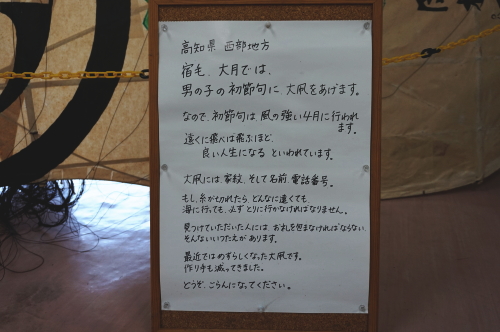 高知県 西部地方
宿毛、大月では、
男の子の初節句に、大凧をあげます。
なので、初節句は風の強い4月に行われ
ます。
遠くに飛べば飛ぶほど、
良い人生になるといわれています。
大凧には家紋、そして名前、電話番号。
もし、糸が切れたら、どんなに遠くても、
海に行っても、必ずとりに行かなければなりません。
見つけていただいた人には、お礼を包まなければならない、
そんないいつたえがあります。
最近ではめずらしくなった大凧です。
作り手も減ってきました。
どうぞ、ごらんになってください。